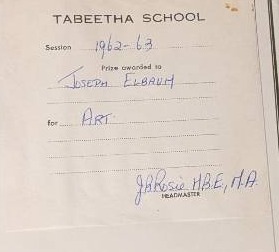 TABEETHA SCHOOL
Session 1962-63
Prize awarded to
JOSEPH ELBAUM
for ART.
J.B. Rosie M.B.E., M.A.
HEADMASTER